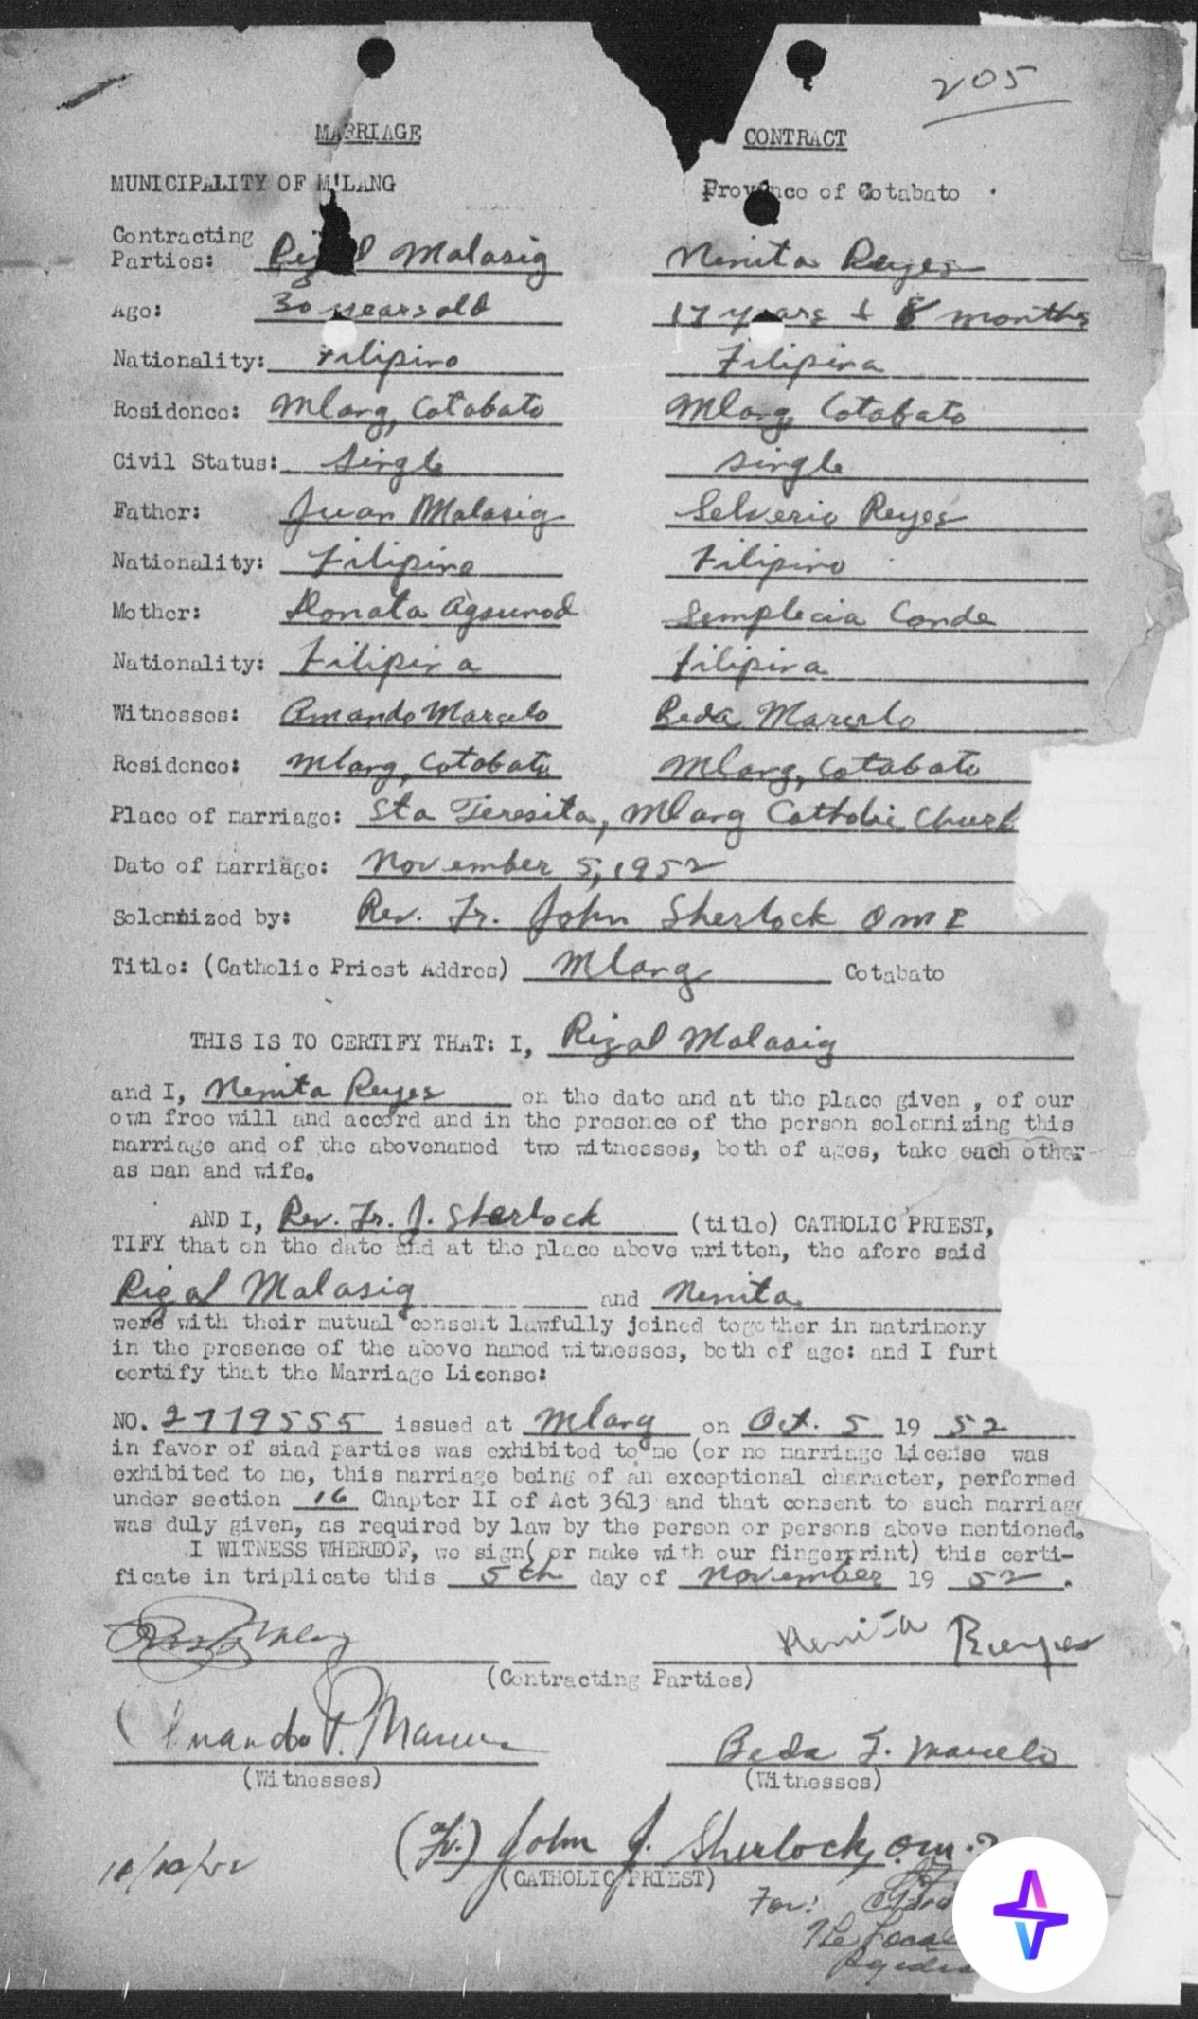 205
MARRIAGE CONTRACT
MUNICIPALITY OF M'LANG Province of Cotabato
Contracting
Parties: Rizal Malasig Nenita Reyes
Age: 30 years old 17 years & 8 months
Nationality: Filipino Filipina
Residence: Mlang, Cotabato Mlang, Cotabato
Civil Status: Single single
Father: Juan Malasig Selverio Reyes
Nationality: Filipino Filipino
Mother: Donata Agsunod Semplecia Conde
Nationality: Filipina filipina
Witnesses: Amando Marcelo Beda Marcelo
Residence: Mlang, Cotabato Mlang, Cotabato
Place of marriage: Sta Teresita, Mlang Catholic Church
Date of marriage: November 5, 1952
Solemnized by: Rev. Fr. John Sherlock OMI
Title: (Catholic Priest Addres) Mlang Cotabato
THIS IS TO CERTIFY THAT: I, Rizal Malasig
and I, Nenita Reyes on the date and at the place given , of our
own free will and accord and in the presence of the person solemnizing this
marriage and of the abovenamed two witnesses, both of ages, take each other
as man and wife.
AND I, Rev. Fr. J. Sherlock (title) CATHOLIC PRIEST,
TIFY that on the date and at the place above written, the afore said
Rizal Malasig and Nenita
were with their mutual consent lawfully joined together in matrimony
in the presence of the above named witnesses, both of age: and I furt
certify that the Marriage License:
NO. 2779555 issued at Mlang on Oct. 5 19 52
in favor of siad parties was exhibited to me (or no marriage license was
exhibited to me, this marriage being of an exceptional character, performed
under section 16 Chapter II of Act 3613 and that consent to such marriage
was duly given, as required by law by the person or persons above mentioned.
I WITNESS WHEREOF, we sign( or make with our fingerprint) this certi-
ficate in triplicate this 5th day of November 19 52 .
Nenita Reyes
(Contracting Parties)
Amando P. Marcelo Beda F. Marcelo
(Witnesses) (Witnesses)
(Fr.) John J. Sherlock, OMI
(CATHOLIC PRIEST)
For:
The Local